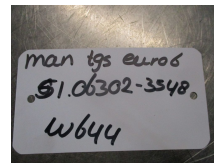 man tgs euro6
51.06302-3548
W644